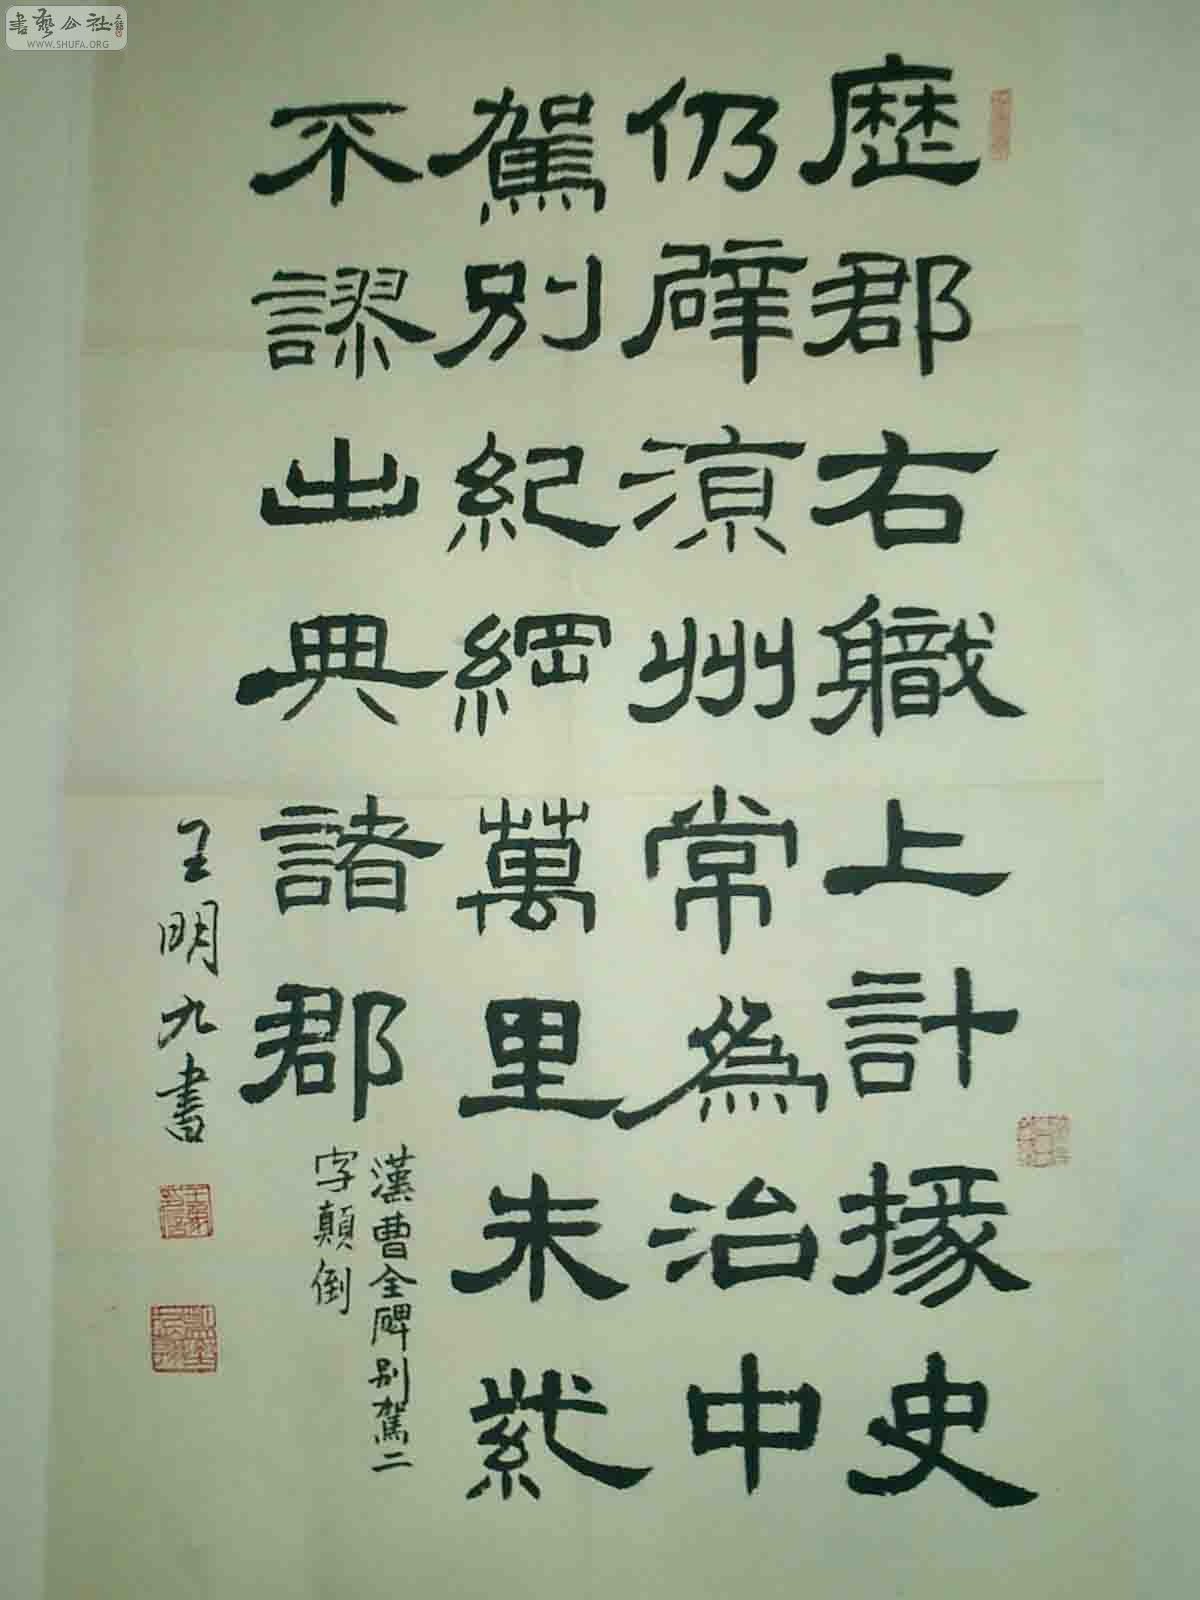 歷郡右職上計掾史
仍辟涼州常爲治中
駕別紀綱萬里朱紫
不謬出典諸郡
漢曹全碑別駕二
字顛倒
王明九書
書藝公社
WWW.SHUFA.ORG